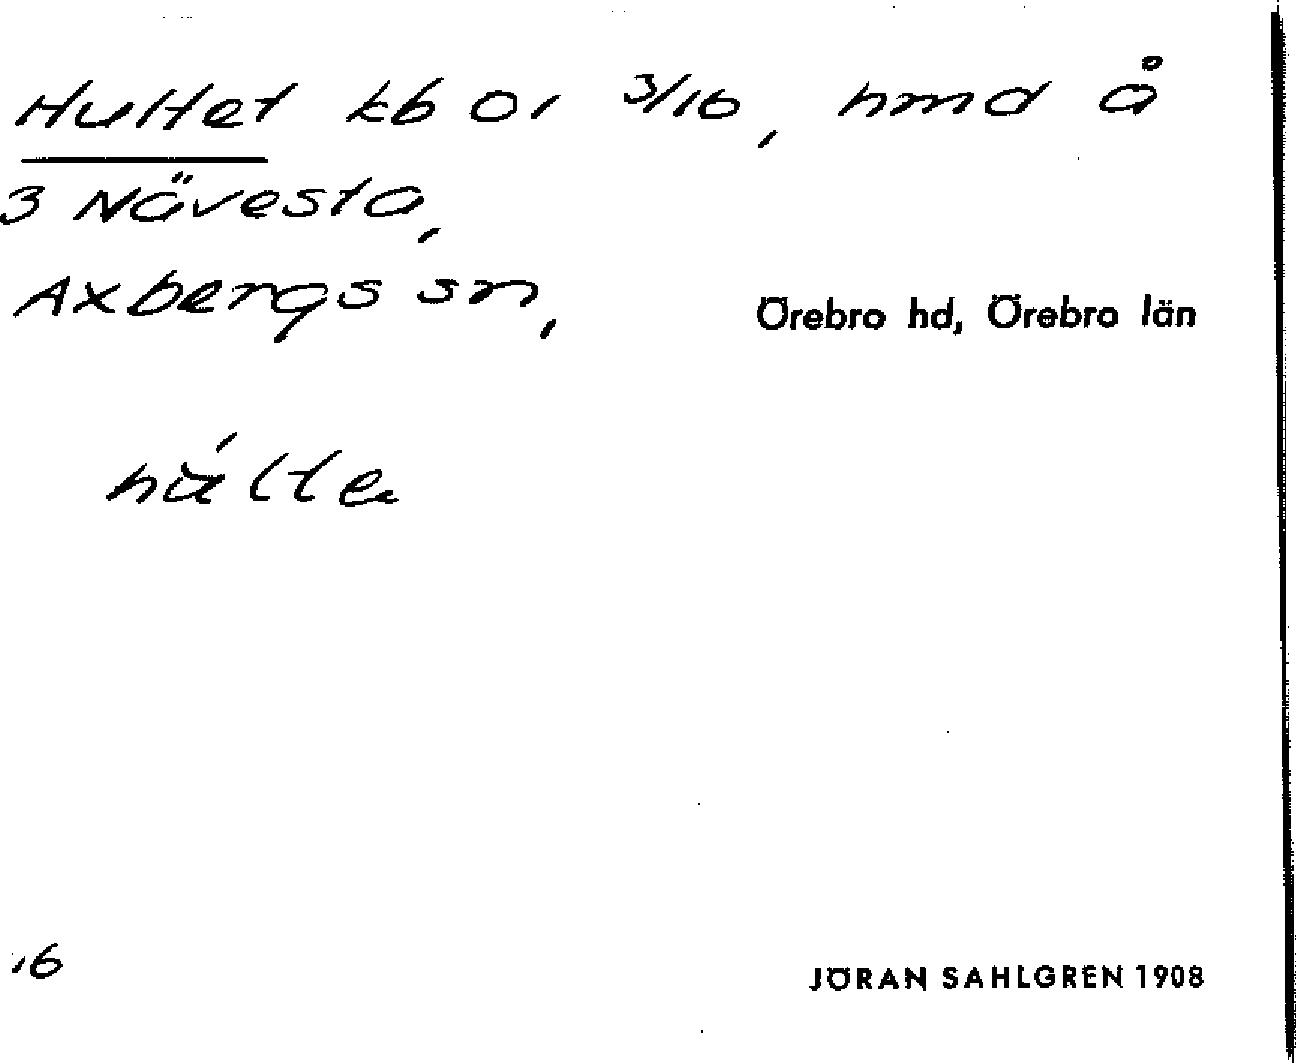 Hultet kb Or 3/16, hmd å
3 Nävesta,
Axbergs sn,
Örebro hd, Örebro län
hult̀e
16
JÖRAN SAHLGREN 1908